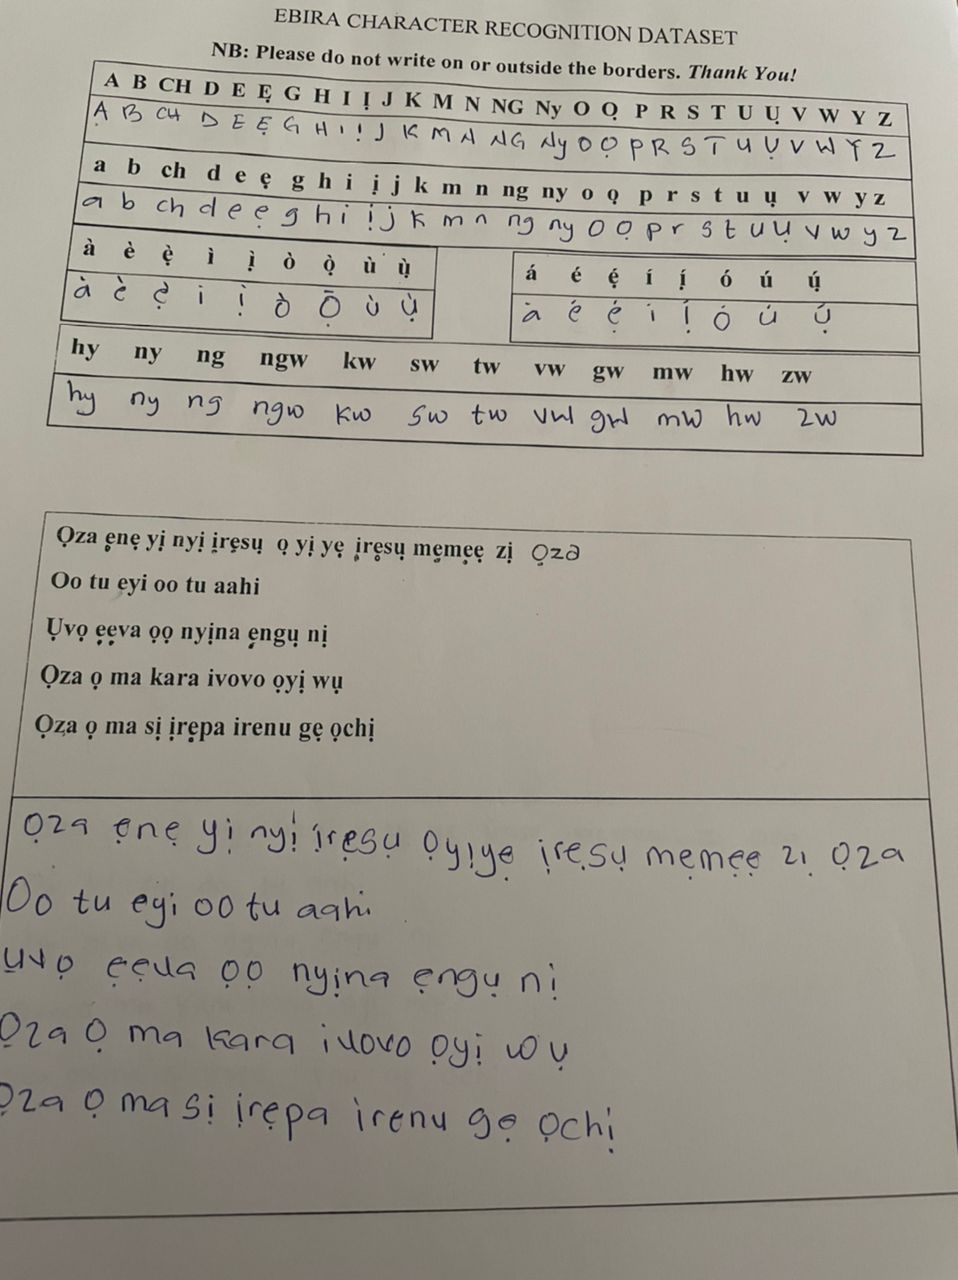 EBIRA CHARACTER RECOGNITION DATASET
NB: Please do not write on or outside the borders. Thank You!
A B CH D E Ẹ G H I Ị J K M N NG Ny O Ọ P R S T U Ụ V W Y Z
Ạ B CH D E Ẹ G H I Ị J K M N NG Ny O Ọ P R S T U Ụ V W Y Z
a b ch d e ẹ g h i ị j k m n ng ny o ọ p r s t u ụ v w y z
a b ch d e ẹ g h i ị j k m n ng ny o ọ p r s t u ụ v w y z
à è ẹ̀ ì ị̀ ò ọ̀ ù ụ̀
à è ẹ̀ i ị ò ọ̄ ù ụ̀
á é ẹ́ í ị́ ó ú ụ́
à é ẹ́ i ị́ ó ú ụ́
hy ny ng ngw kw sw tw vw gw mw hw zw
hy ny ng ngw kw sw tw vw gw mw hw zw
Ọza ẹnẹ yị nyị ịrẹsụ ọ yị yẹ ịrẹsụ mẹmẹẹ zị Ọza
Oo tu eyi oo tu aahi
Ụvọ ẹẹva ọọ nyịna ẹngụ nị
Ọza ọ ma kara ivovo ọyị wụ
Ọza ọ ma sị ịrẹpa irenu gẹ ọchị
Ọza ẹnẹ yị nyị ịrẹsụ ọyịyẹ ịrẹsụ mẹmẹẹ zị Ọza
Oo tu eyi oo tu aahi
ụvọ ẹẹva ọọ nyịna ẹngụ nị
Ọza Ọ ma kara ivovo ọyị wụ
Ọza Ọ ma sị ịrẹpa irenu gẹ ọchị